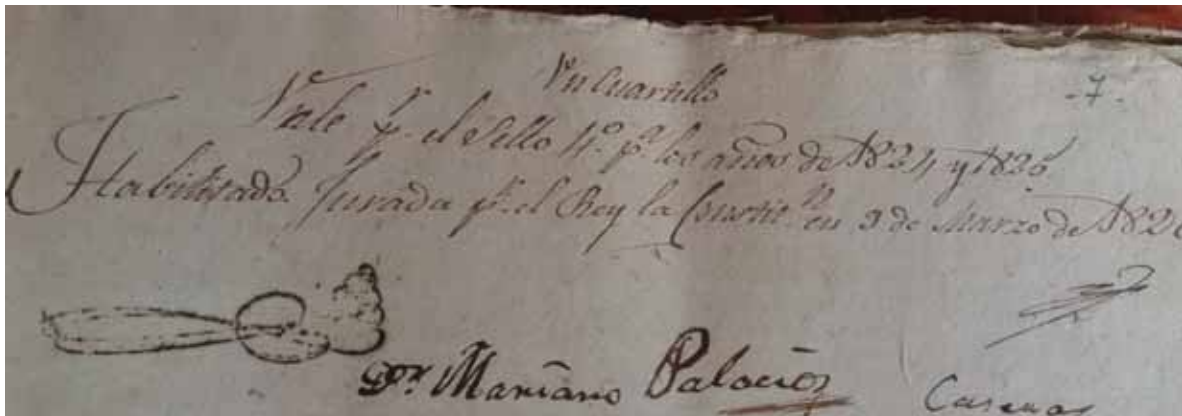 Un Cuartillo
-7-
Vale pr. el Sello 4o. pa. los años de 1824 y 1825.
Habilitado. Jurada pr. el Rey la Constit.n en 9 de Marzo de 1820
Dor. Mariano Palacios